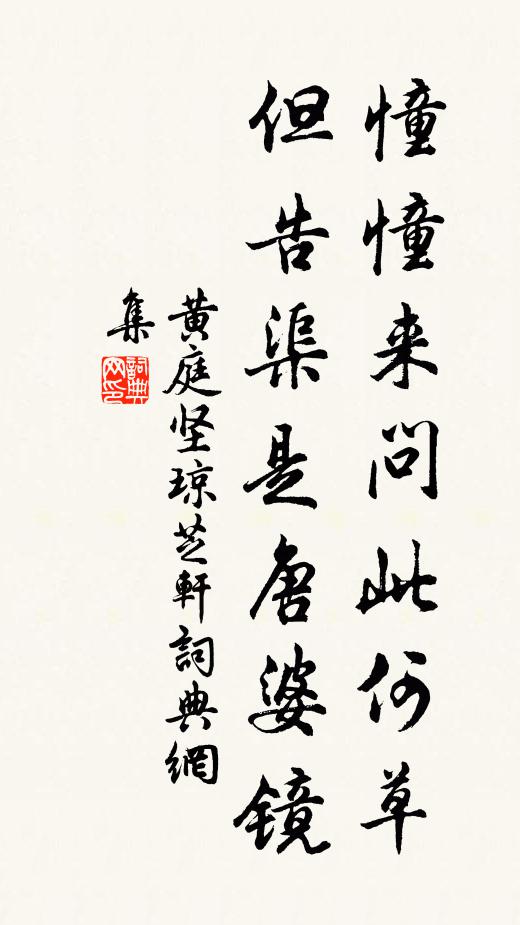 憧憧来问此何草
但告渠是唐婆镜
黄庭坚琼芝軒詞典網
集
詞典网印